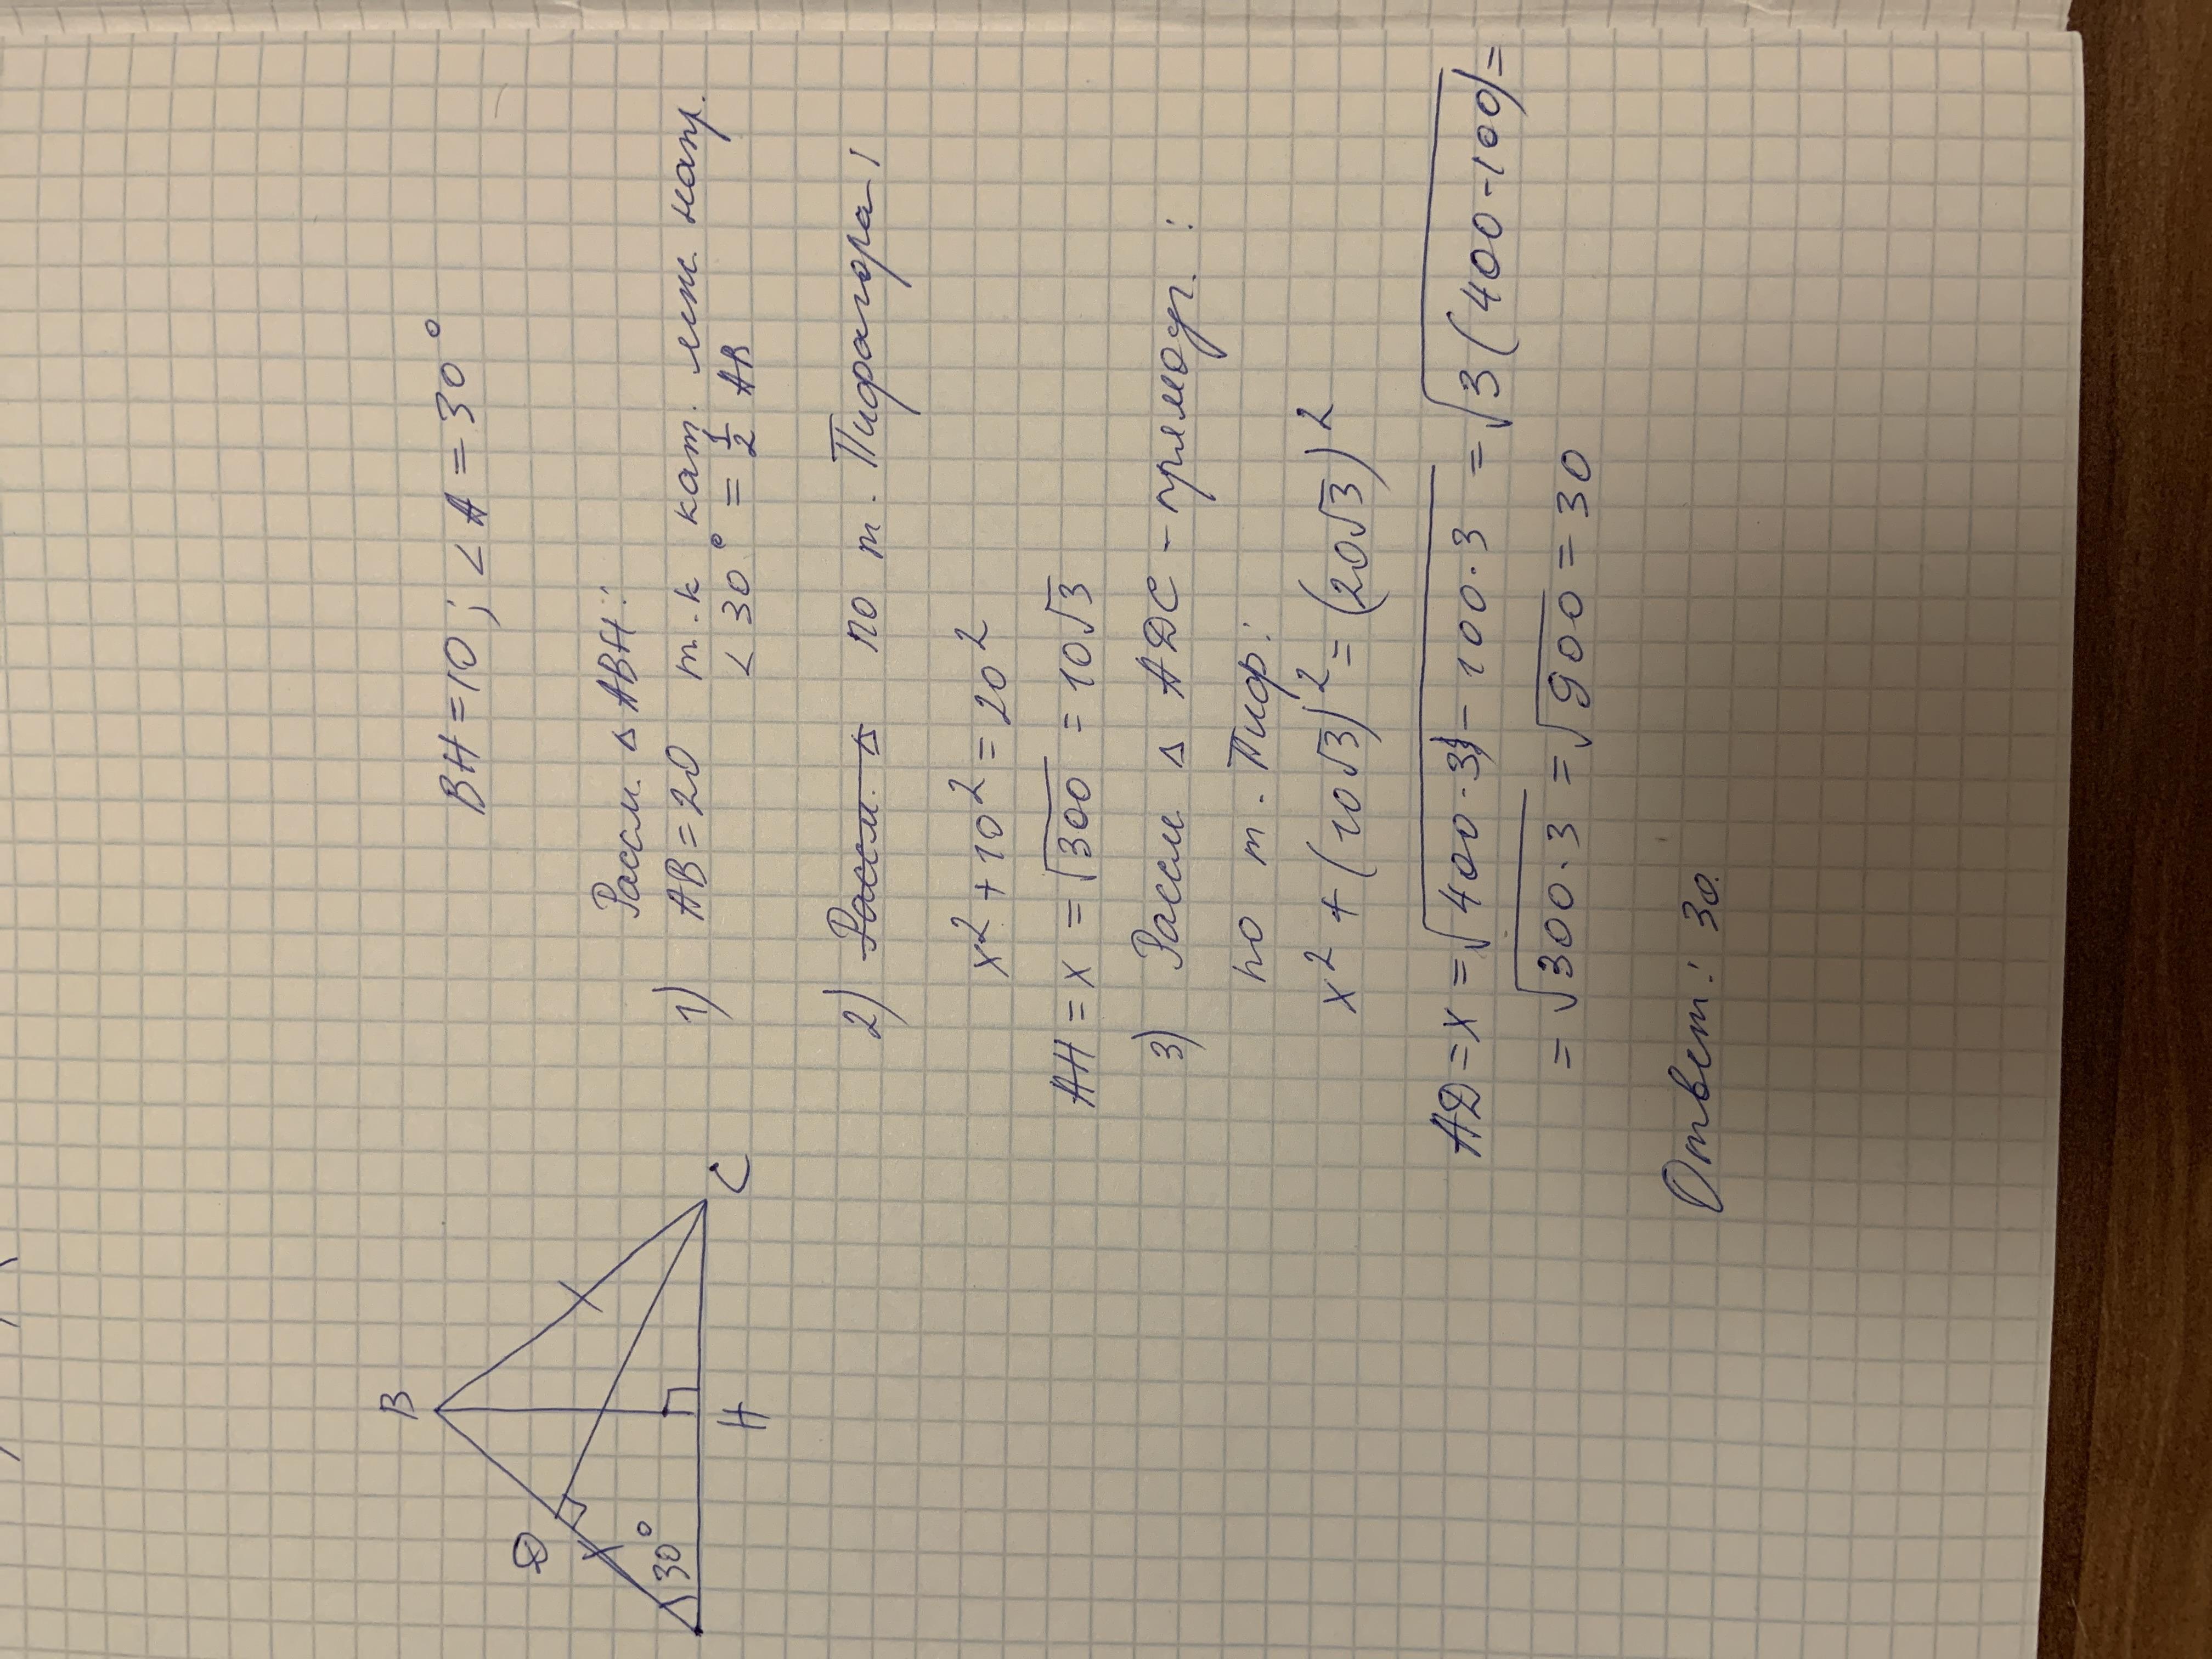 B
D
30°
H
C
BH = 10 ; < A = 30°
Рассм. △ ABH:
1) AB = 20 т.к кат. леж. напр.
< 30° = 1/2 AB
2) Рассм. △ по т. Пифагора
x² + 10² = 20²
AH = x = √300 = 10√3
3) Рассм △ АДС - прямоуг. :
по т. Пиф:
x² + (10√3)² = (20√3)²
АД = x = √400·3) - 100·3 = √3(400-100) =
= √300·3 = √900 = 30
Ответ: 30.